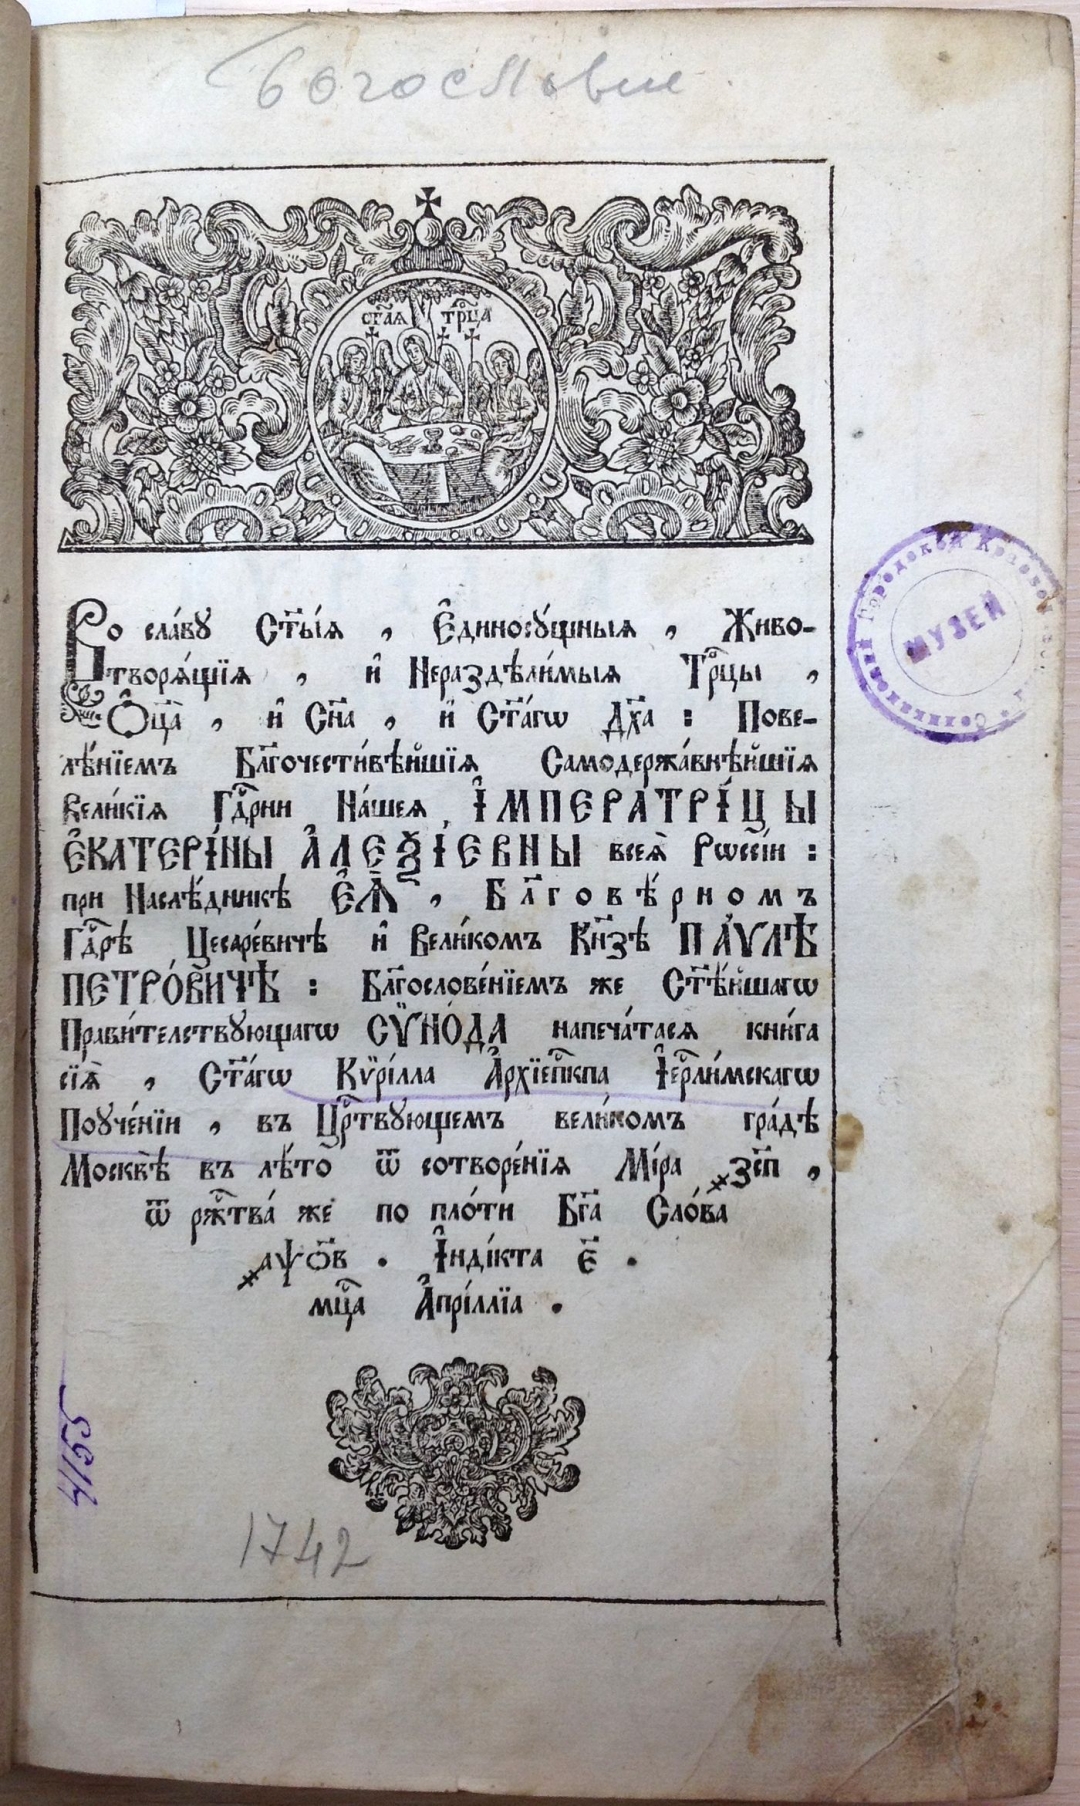 Богословие
ст҃ая трⷪ҇ца
Во сла́вꙋ Ст҃ы́ѧ , Є҆диносꙋ́щныѧ , Живо-
творѧ́щїѧ , и҆ Нераздѣли́мыѧ Трⷪ҇цы ,
Ѻ҆ц҃а̀ , и҆ Сн҃а , и҆ Ст҃а́гѡ Дх҃а : Пове-
лѣ́нїемъ Бл҃гочести́вѣйшїѧ Самодержа́внѣйшїѧ
Вели́кїѧ Гдⷭ҇рни На́шеѧ І҆МПЕРАТРІ́ЦЫ
Є҆КАТЕРІ́НЫ А҆ЛЕѮІ́ЕВНЫ всеѧ̀ Рѡссі́и :
при Наслѣ́дникѣ Є҆Ѧ̀ , Бл҃говѣ́рномъ
Гдⷭ҇рѣ Цесаре́вичѣ и҆ Вели́комъ Кн҃зѣ ПА́ѴЛѢ
ПЕТРО́ВИЧѢ : Бл҃гослове́нїемъ же Ст҃ѣ́йшагѡ
Прави́телствꙋющагѡ СѴНО́ДА напеча́тасѧ кни́га
сїѧ̀ , Ст҃а́гѡ Кѷрі́лла А҆рхїепⷭ҇кпа І҆ерⷭ҇ли́мскагѡ
Поуче́нїи , въ Црⷭ҇твꙋющемъ вели́комъ гра́дѣ
Москвѣ̀ въ лѣ́то ѿ сотворе́нїѧ Мі́ра ҂зсп҃ ,
ѿ рж҇ⷭ҇тва́ же по пло́ти Бг҃а Сло́ва
҂аѱо҃в . І҆нді́кта є҃ .
мцⷭ҇а А҆прі́ллїа .
1742
4155
Соликамский Городской Краеведч
МУЗЕЙ